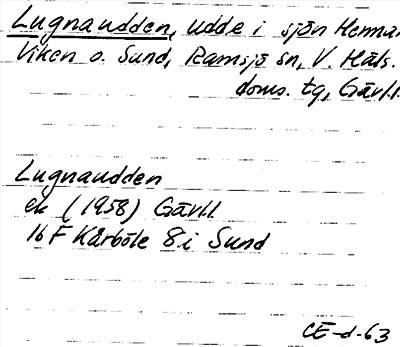 Lugnaudden, udde i sjön Hennan
Viken o. Sund, Ramsjö sn, V. Häls.
doms. tg, Gävl.l.
Lugnaudden
ek (1958) Gävl.l
16 F Kårböle 8 i Sund
CE-d-63